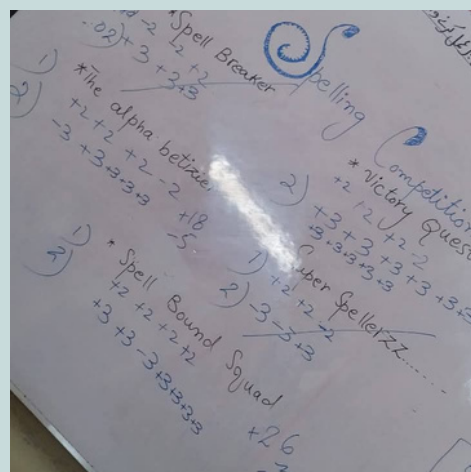 Spelling Competition
* Spell Breaker
-2 -2 +2
.02) + 3 + 3 +3
* The alpha betizie
1) +2 +2 +2 -2
2) -3 +3 +3 +3 +3
+18
-5
* Victory Ques
+2 +2 +2 -2
2) +3 +3 +3 +3 +3 +3
+3 +3 +3 +3 +3
Super Spellerzz.......
1) +2 +2 -2
2) -3 -3 +3
* Spell Bound Squad
1) +2 +2 +2 +2
2) +3 +3 -3 +3 +3 +3 +3
+26